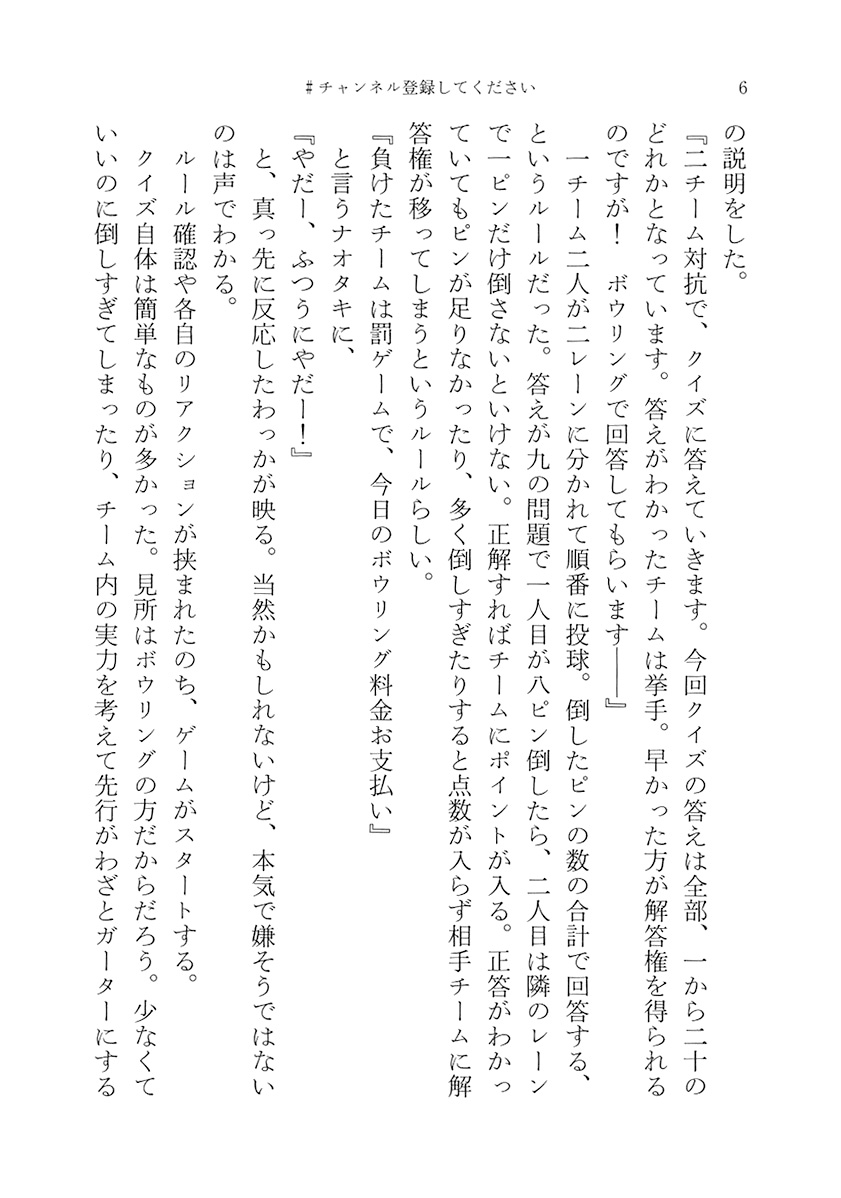 6
#チャンネル登録してください
の説明をした。
『二チーム対抗で、クイズに答えていきます。今回クイズの答えは全部、一から二十の
どれかとなっています。答えがわかったチームは挙手。早かった方が解答権を得られる
のですが！　ボウリングで回答してもらいます――』
　一チーム二人が二レーンに分かれて順番に投球。倒したピンの数の合計で回答する、
というルールだった。答えが九の問題で一人目が八ピン倒したら、二人目は隣のレーン
で一ピンだけ倒さないといけない。正解すればチームにポイントが入る。正答がわかっ
ていてもピンが足りなかったり、多く倒しすぎたりすると点数が入らず相手チームに解
答権が移ってしまうというルールらしい。
『負けたチームは罰ゲームで、今日のボウリング料金お支払い』
　と言うナオタキに、
『やだー、ふつうにやだー！』
　と、真っ先に反応したわっかが映る。当然かもしれないけど、本気で嫌そうではない
のは声でわかる。
　ルール確認や各自のリアクションが挟まれたのち、ゲームがスタートする。
　クイズ自体は簡単なものが多かった。見所はボウリングの方だからだろう。少なくて
いいのに倒しすぎてしまったり、チーム内の実力を考えて先行がわざとガーターにする